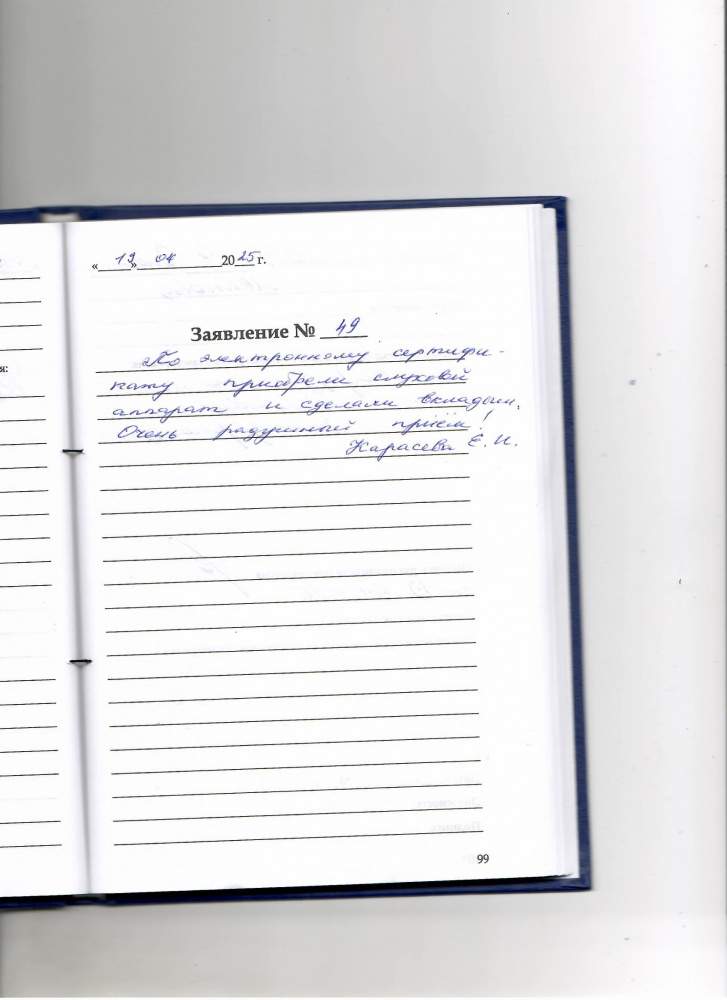 « 19 » 04 2025 г.
Заявление № 49
По электронному сертифи-
кату приобрели слуховой
аппарат и сделали вкладыш.
Очень радушный приём!
Карасева Е. И.
я:
99